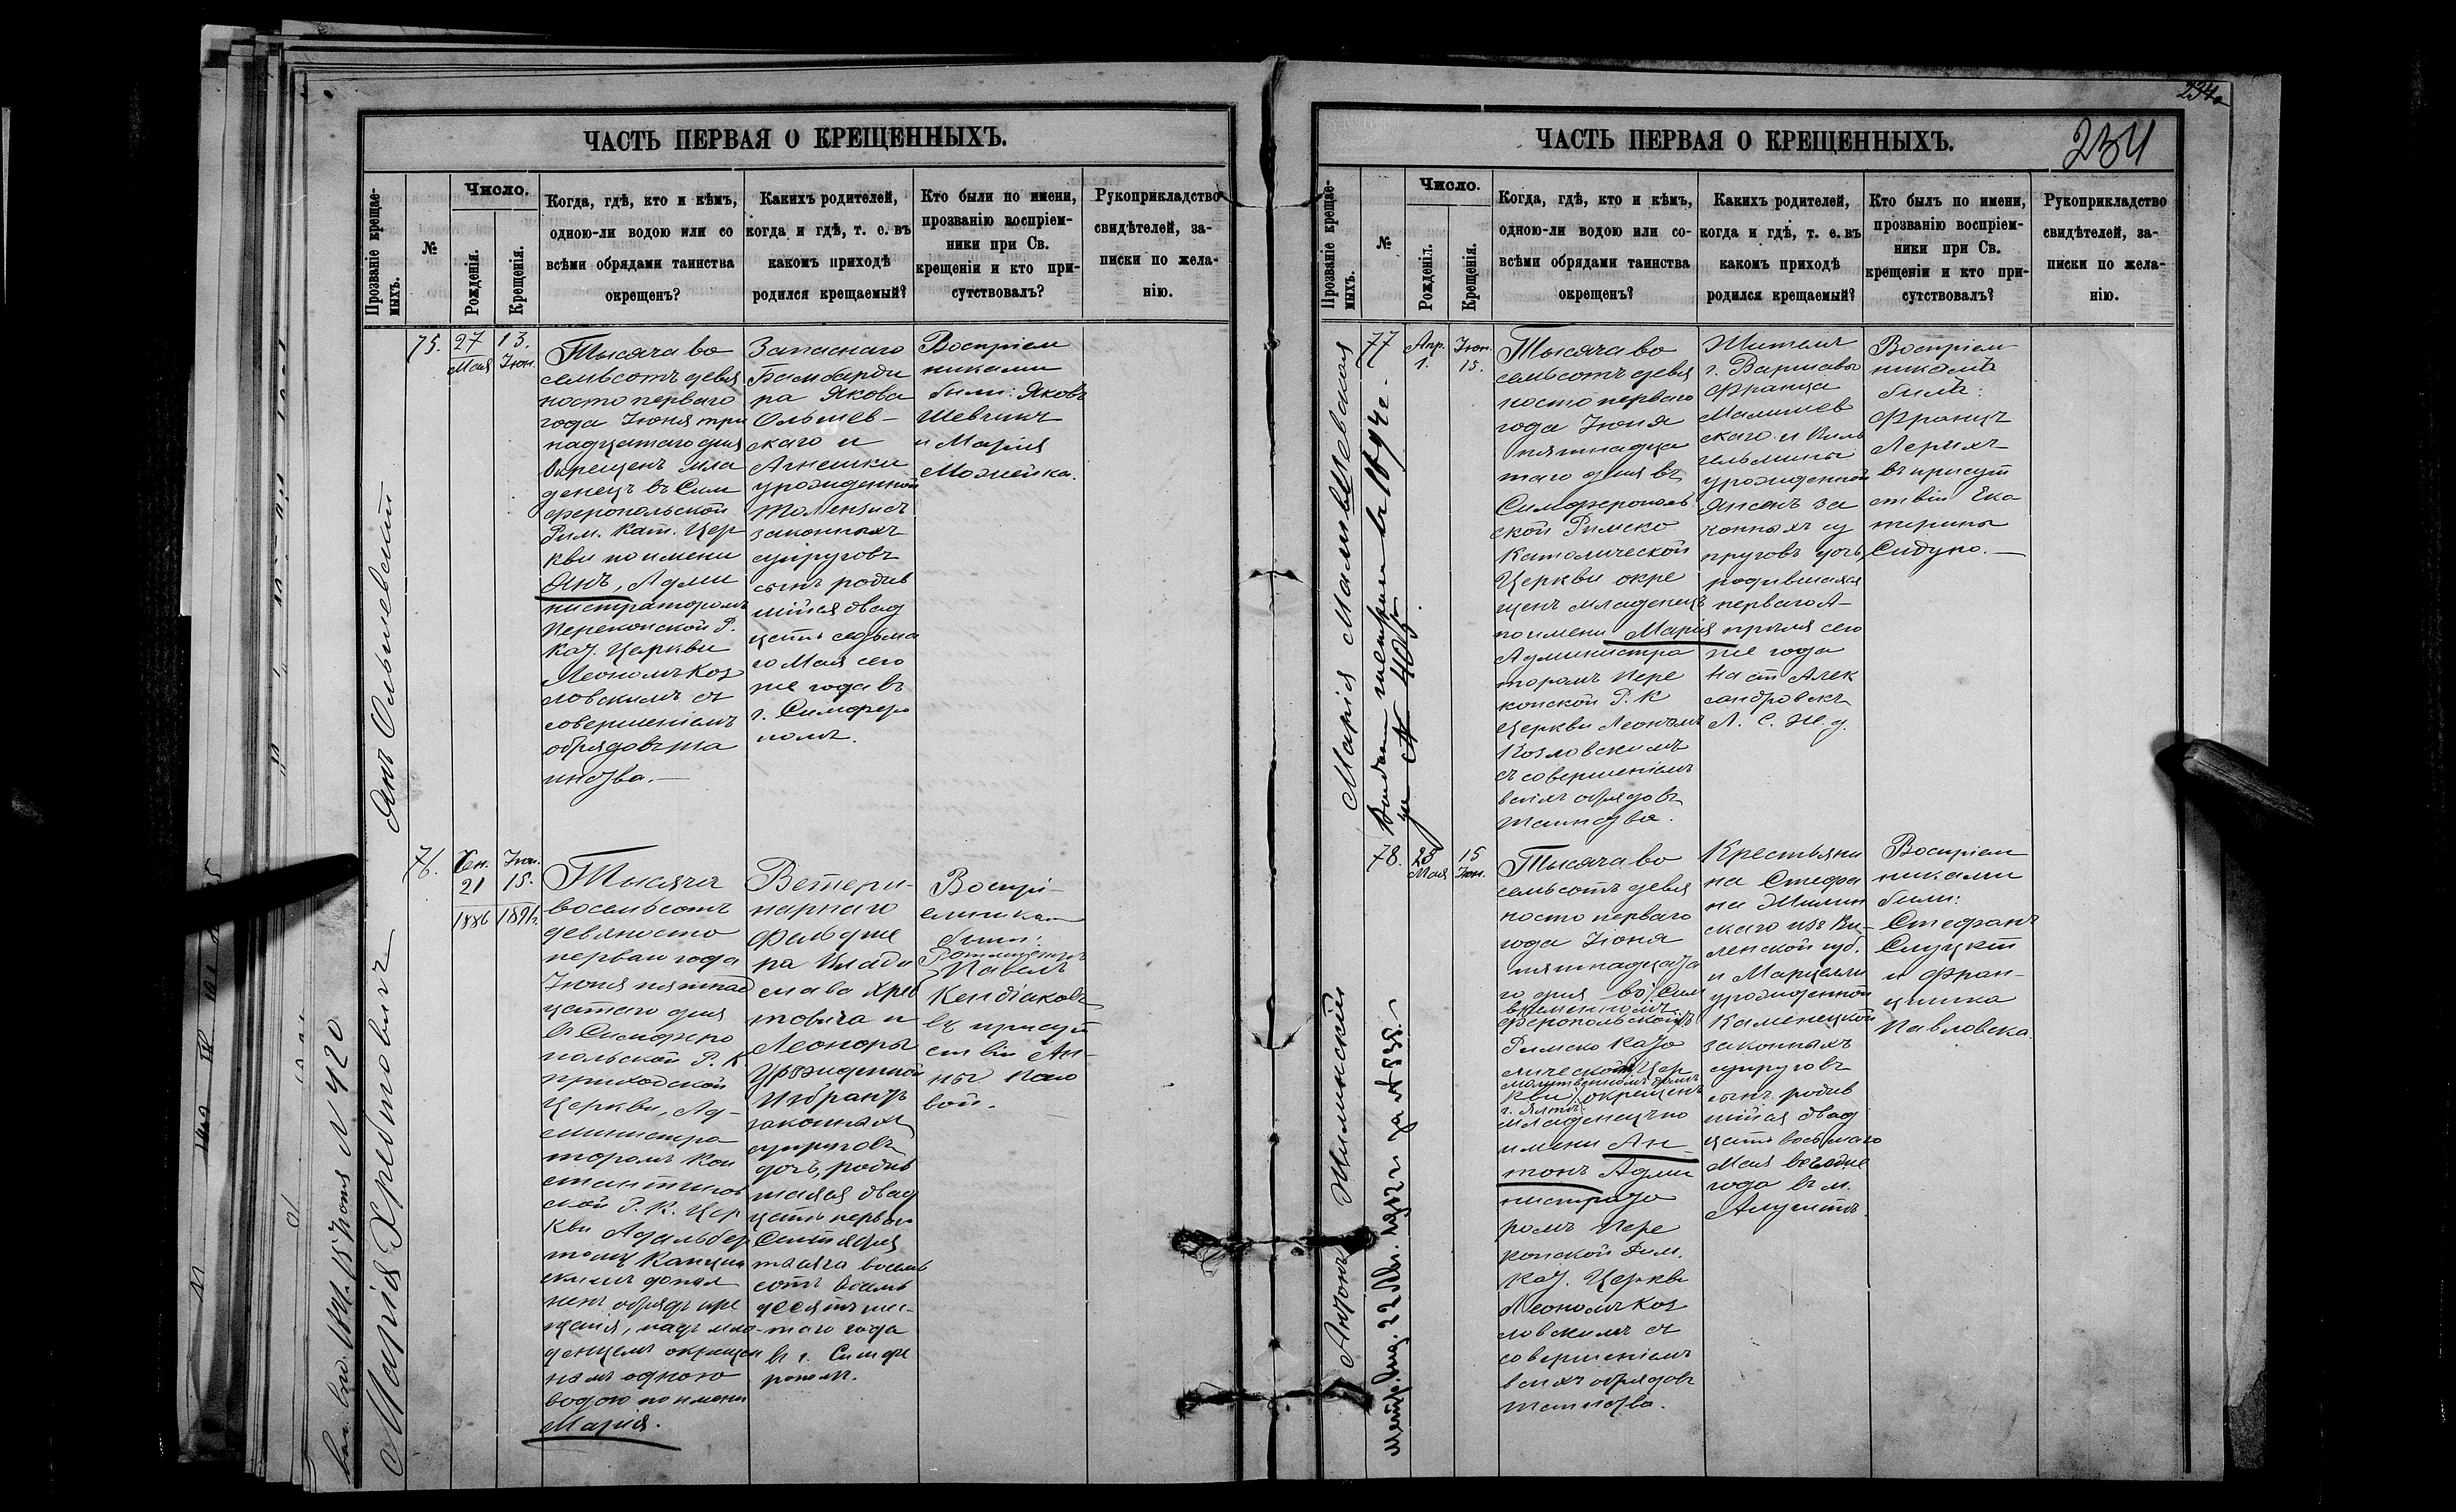 ЧАСТЬ ПЕРВАЯ О КРЕЩЕННЫХЪ.
Прозваніе крещае-
мыхъ.
№
Число.
Рожденія.
Крещенія.
Когда, гдѣ, кто и кѣмъ,
одною-ли водою или со
всѣми обрядами таинства
окрещенъ?
Какихъ родителей,
когда и гдѣ, т. е. въ
какомъ приходѣ
родился крещаемый?
Кто были по имени,
прозванію воспріем-
ники при Св.
крещеніи и кто при-
сутствовалъ?
Рукоприкладство
свидѣтелей, за-
писки по жела-
нію.
Янъ Ольшевскій
75.
27
Мая
13.
Іюн.
Тысяча во
семьсотъ девя
носто перваго
года Іюня три
надцатаго дня
окрещенъ мла
денецъ въ Сим
феропольской
Рим. Кат. Цер
кви по имени
Янъ, Адми
нистраторомъ
Перекопской Р.
Кат. Церкви
Леономъ Коз
ловскимъ съ
совершеніемъ
обрядовъ та
инства.
Запаснаго
Бамбарди
ра Якова
Ольшев-
скаго и
Агнешки
урожденной
законныхъ
супруговъ
сынъ родив
шійся двад
цать седьма
го Мая сего
же года въ
г. Симферо
полѣ.
Воспріем
никами
были: Яковъ
Шевчикъ
и Марія
Можейка.
Марія Хребтовичъ
15 Іюня N 420
76.
Сен.
21
1886
Іюн.
15.
1891г.
Тысяча
восемьсотъ
девяносто
перваго года
Іюня пятнад
цатаго дня
въ Симферо
польской Р. К.
приходской
Церкви, Ад-
министра
торомъ Кон
стантинов
ской Р. К. Цер
кви Адальбер
томъ
скимъ допол
ненъ обрядъ кре
щенія, надъ мла-
денцемъ окрещен
нымъ одною
водою по имени
Марія.
Ветери-
нарнаго
фельдше
ра Влади
слава Хреб
товича и
Леоноры
урожденной
законныхъ
супруговъ
дочь, родив
шаяся двад
цать перваго
Сентября
тысяча восемь
сотъ восемь
десятъ шес-
таго года
въ г. Симфе
рополѣ.
Воспрі-
емника
были:
Ротмистръ
Павелъ
Кендіаковъ
въ присут
ствіи Ан-
ны
234
ЧАСТЬ ПЕРВАЯ О КРЕЩЕННЫХЪ.
Прозваніе крещае-
мыхъ.
№
Число.
Рожденіл.
Крещенія.
Когда, гдѣ, кто и кѣмъ,
одною-ли водою или со-
всѣми обрядами таинства
окрещенъ?
Какихъ родителей,
когда и гдѣ, т. е. въ
какомъ приходѣ
родился крещаемый?
Кто былъ по имени,
прозванію воспріем-
ники при Св.
крещеніи и кто при-
сутствовалъ?
Рукоприкладство
свидѣтелей, за-
писки по жела-
нію.
Марія Малишевская
за № 405
77
Апр.
1.
Іюн.
15.
Тысяча во
семьсотъ девя
носто перваго
года Іюня
пятнадца
таго дня въ
Симферополь
ской Римско
Католической
Церкви окре
щенъ младенецъ
по имени Марія
Администра
торомъ Пере
копской Р. К
Церкви Леономъ
Козловскимъ
съ совершеніемъ
всѣхъ обрядовъ
таинства.
Жителя
г. Варшавы
Франца
Малишев
скаго и Виль
гельмины
урожденной
Янсенъ за
конныхъ су
пруговъ дочь,
родившаяся
перваго А-
прѣля сего
же года
на ст Алек
сандровскъ
Л. С. Ж. д.
Воспріем-
никомъ
былъ:
Францъ
Лерихъ
въ присут
ствіи Ека
терины
Сидуно.
Антонъ Жилинскій
Метр. выд. 22 Авг. 1912 г. за № 535.
78.
25
Мая
15
Іюн.
Тысяча во
семьсотъ девя
носто перваго
года Іюня
пятнадцата
го дня во Сим
временномъ
феропольской
Римско Като
лической Цер
молитвенномъ домѣ
кви окрещенъ
г. Ялты
младенецъ по
имени Ан-
тонъ Адми
нистрато
ромъ Пере
копской Рим.
Кат. Церкви
Леономъ Коз
ловскимъ съ
совершеніемъ
всѣхъ обрядовъ
таинства.
Крестьяни
на Стефа
на Жилин
скаго изъ Ви-
ленской губ.
и Марцелли
урожденной
Каменецкой
законныхъ
супруговъ
сынъ родив
шійся двад
цать восьмаго
Мая
года въ м.
Алуштѣ.
Воспріем
никами
были:
Стефанъ
Слуцкій
и Фран-
цишка
Павловска.